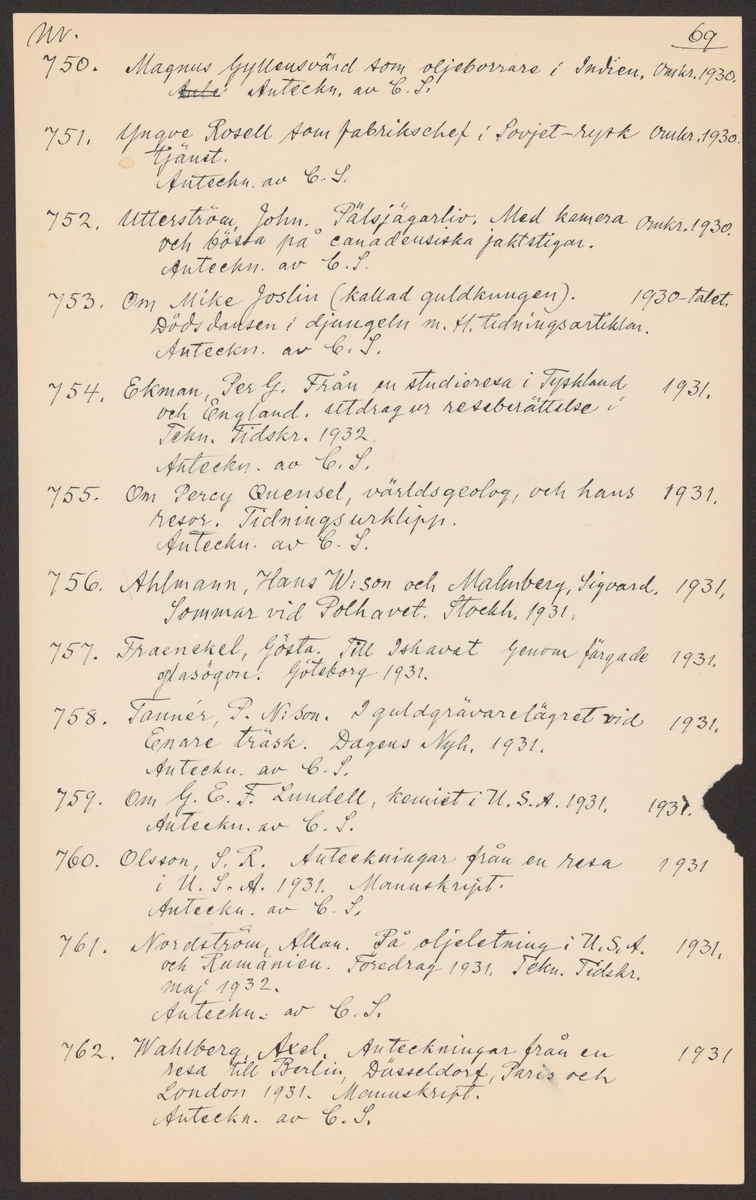 Nr. 69
750. Magnus Gyllensvärd som oljeborrare i Indien. Omkr. 1930.
Anteckn. av C. S.
751. Yngve Rosell som fabrikschef i Sovjet-rysk Omkr. 1930.
tjänst.
Anteckn. av C. S.
752. Utterström, John. Pälsjägarliv. Med kamera Omkr. 1930.
och bössa på canadensiska jaktstigar.
Anteckn. av C. S.
753. Om Mike Joslin (kallad guldkungen). 1930-talet.
Dödsdansen i djungeln m. fl. tidningsartiklar.
Anteckn. av C. S.
754. Ekman, Per G. Från en studieresa i Tyskland 1931.
och England. Utdrag ur reseberättelse i
Tekn. Tidskr. 1932.
Anteckn. av C. S.
755. Om Percy Quensel, världsgeolog, och hans 1931.
resor. Tidningsurklipp.
Anteckn. av C. S.
756. Ahlmann, Hans W:son och Malmberg, Sigvard. 1931.
Sommar vid Polhavet. Stockh. 1931.
757. Fraenckel, Gösta. Till Ishavet genom färgade 1931.
glasögon. Göteborg 1931.
758. Tannér, P. N:son. I guldgrävarelägret vid 1931.
Enare träsk. Dagens Nyh. 1931.
Anteckn. av C. S.
759. Om G. E. F. Lundell, kemist i U. S. A. 1931. 1931.
Anteckn. av C. S.
760. Olsson, S. R. Anteckningar från en resa 1931
i U. S. A. 1931. Manuskript.
Anteckn. av C. S.
761. Nordström, Allan. På oljeletning i U. S. A. 1931.
och Rumänien. Föredrag 1931. Tekn. Tidskr.
maj 1932.
Anteckn. av C. S.
762. Wahlberg, Axel. Anteckningar från en 1931
resa till Berlin, Düsseldorf, Paris och
London 1931. Manuskript.
Anteckn. av C. S.